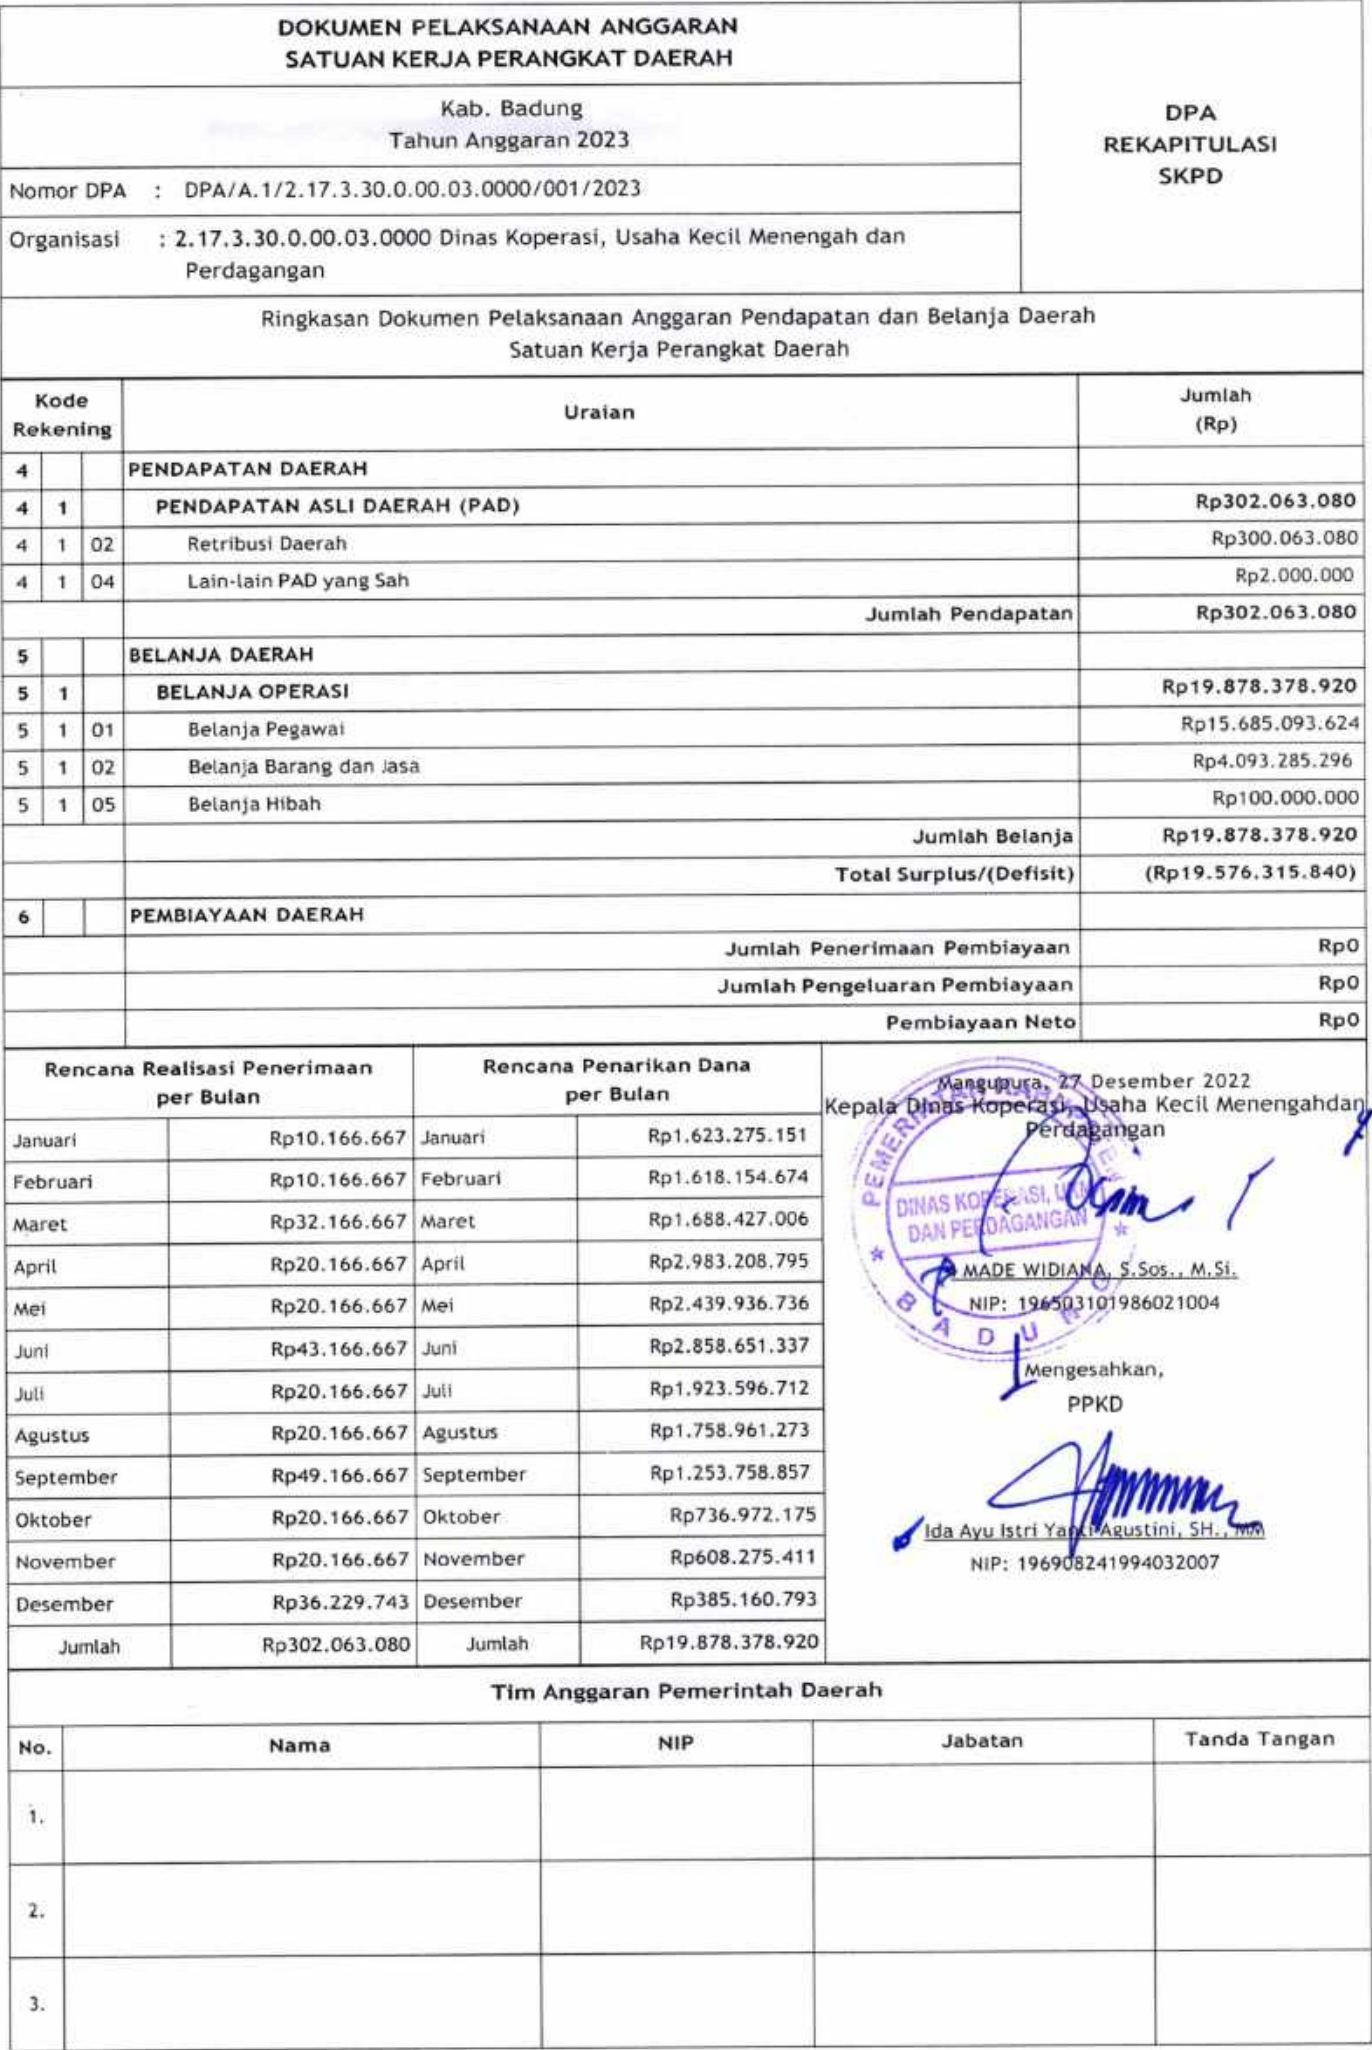 DOKUMEN PELAKSANAAN ANGGARAN
SATUAN KERJA PERANGKAT DAERAH
DPA
REKAPITULASI
SKPD
Kab. Badung
Tahun Anggaran 2023
Nomor DPA : DPA/A.1/2.17.3.30.0.00.03.0000/001/2023
Organisasi : 2.17.3.30.0.00.03.0000 Dinas Koperasi, Usaha Kecil Menengah dan
Perdagangan
Ringkasan Dokumen Pelaksanaan Anggaran Pendapatan dan Belanja Daerah
Satuan Kerja Perangkat Daerah
Kode Rekening Uraian Jumlah (Rp)
4 PENDAPATAN DAERAH
4 1 PENDAPATAN ASLI DAERAH (PAD) Rp302.063.080
4 1 02 Retribusi Daerah Rp300.063.080
4 1 04 Lain-lain PAD yang Sah Rp2.000.000
Jumlah Pendapatan Rp302.063.080
5 BELANJA DAERAH
5 1 BELANJA OPERASI Rp19.878.378.920
5 1 01 Belanja Pegawai Rp15.685.093.624
5 1 02 Belanja Barang dan Jasa Rp4.093.285.296
5 1 05 Belanja Hibah Rp100.000.000
Jumlah Belanja Rp19.878.378.920
Total Surplus/(Defisit) (Rp19.576.315.840)
6 PEMBIAYAAN DAERAH
Jumlah Penerimaan Pembiayaan Rp0
Jumlah Pengeluaran Pembiayaan Rp0
Pembiayaan Neto Rp0
Rencana Realisasi Penerimaan per Bulan Rencana Penarikan Dana per Bulan
Januari Rp10.166.667 Januari Rp1.623.275.151
Februari Rp10.166.667 Februari Rp1.618.154.674
Maret Rp32.166.667 Maret Rp1.688.427.006
April Rp20.166.667 April Rp2.983.208.795
Mei Rp20.166.667 Mei Rp2.439.936.736
Juni Rp43.166.667 Juni Rp2.858.651.337
Juli Rp20.166.667 Juli Rp1.923.596.712
Agustus Rp20.166.667 Agustus Rp1.758.961.273
September Rp49.166.667 September Rp1.253.758.857
Oktober Rp20.166.667 Oktober Rp736.972.175
November Rp20.166.667 November Rp608.275.411
Desember Rp36.229.743 Desember Rp385.160.793
Jumlah Rp302.063.080 Jumlah Rp19.878.378.920
Mangupura, 27 Desember 2022
Kepala Dinas Koperasi, Usaha Kecil Menengahdan
Perdagangan
DINAS KOPERASI, UKM
DAN PERDAGANGAN
BADUNG
MADE WIDIANA, S.Sos., M.Si.
NIP: 196503101986021004
Mengesahkan,
PPKD
Ida Ayu Istri Yanti Agustini, SH., MM
NIP: 196908241994032007
Tim Anggaran Pemerintah Daerah
No. Nama NIP Jabatan Tanda Tangan
1.
2.
3.